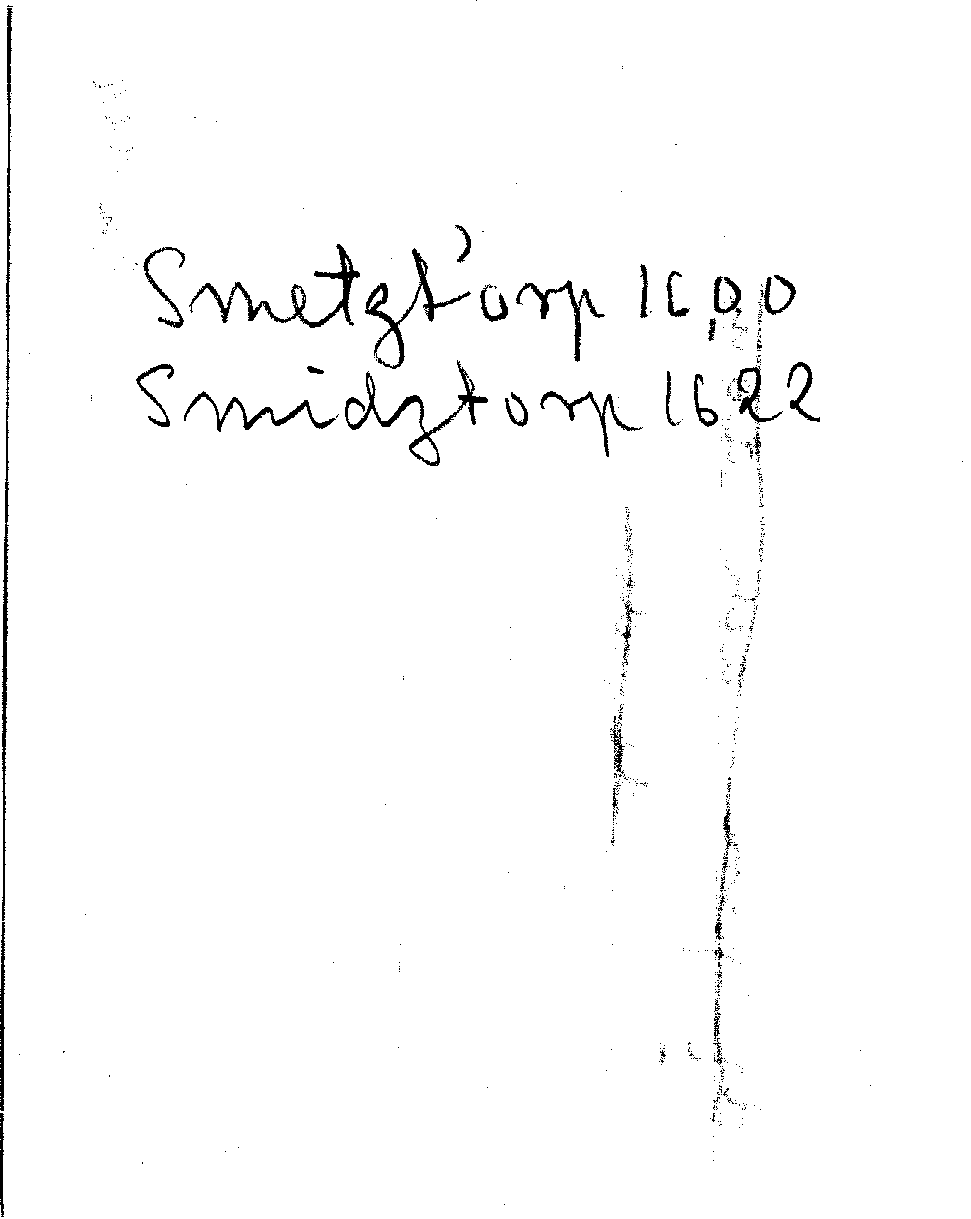 Smetzt'orp 1600
Smidztorp 1622